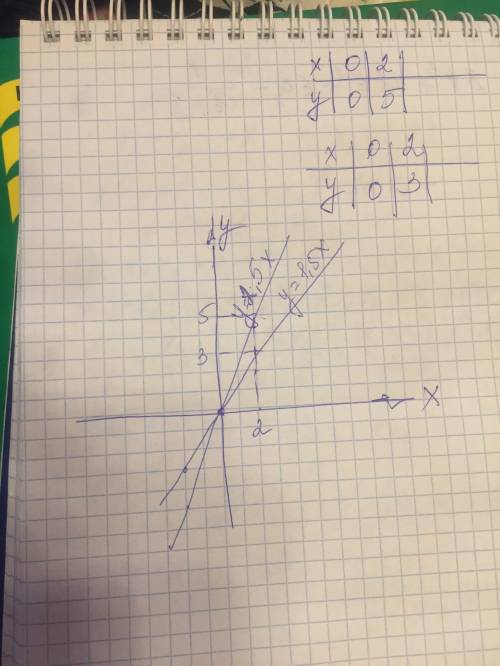 x | 0 | 2 |
y | 0 | 5 |
x | 0 | 2 |
y | 0 | 3 |
y
y=2,5x
y=1,5x
5
3
2
x